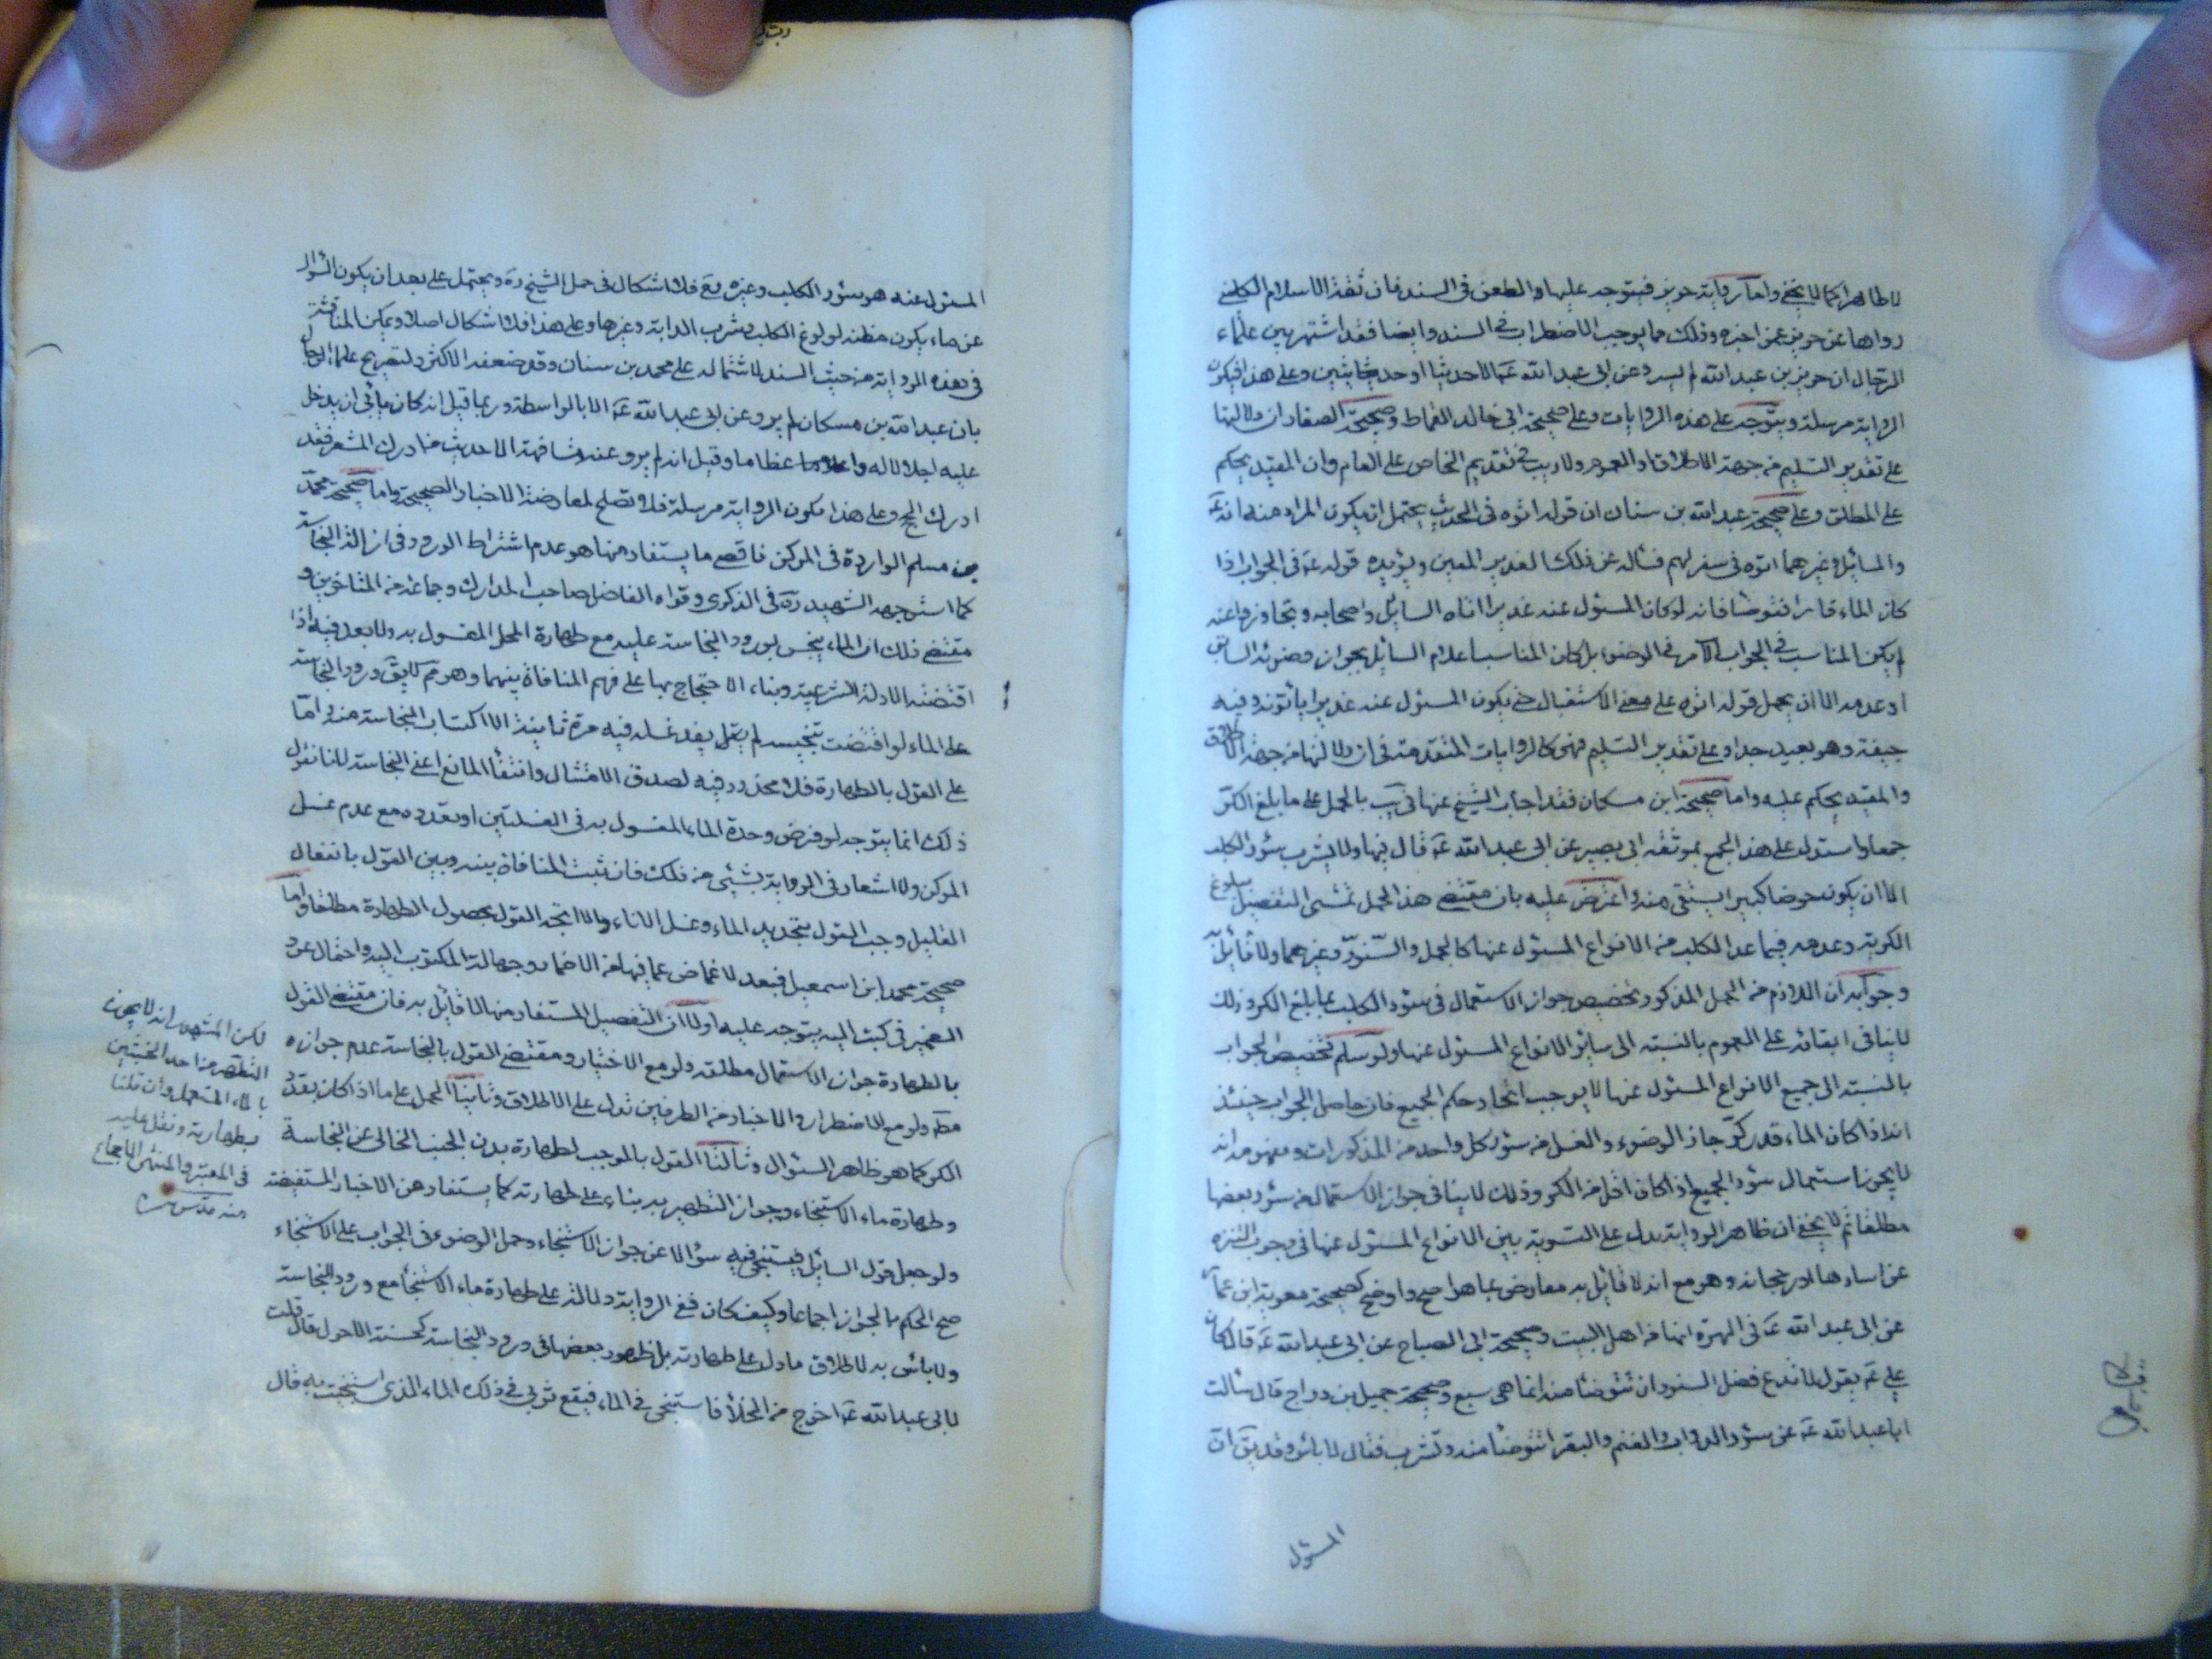 لا طاهرا كما لا يخفى واما رواية حريز فيتوجه عليها الطعن فى السند فان ثقة الاسلام الكلينى
رواها عن حريز عمن اخبره وذلك مما يوجب الاضطراب فى السند وايضا فقد اشتهر بين علماء
الرجال ان حريز بن عبد الله لم يسرو عن ابى عبد الله عَه الا حديثا او حديثين وعلى هذا فيكون
الرواية مرسلة ويتوجه على هذه الروايات وعلى صحيحة ابى خالد القماط وصحيحة الصفار ان دلالتها
على تقدير التسليم من جهة الاطلاق او العموم ولا ريب فى تقديم الخاص على العام وان المقيد يحكم
على المطلق وعلى صحيحة عبد الله بن سنان ان قوله اتوه فى الحديث يحتمل ان يكون المراد منه انه عَه
والسائل وغيرهما اتوه فى سفر لهم فسأله عن ذلك الغدير المعين ويؤيده قوله عَه فى الجواب اذا
كان الماء قاهرا فتوضأ فانه لو كان المسئول عنه غديرا اتاه السائل واصحابه وتجاوزوا عنه
لم يكن المناسب فى الجواب الامر فى الوضوء بل كان المناسب اعلام السائل بجواز وضوئه السابق
او عدمه الا ان يحمل قوله اتوه على معنى الاستقبال حتى يكون المسئول عنه غديرا يأتونه وفيه
جيفة وهو بعيد جدا وعلى تقدير التسليم فهى كالروايات المتقدمة فى ان دلالتها من جهة الاطلاق
والمقيد يحكم عليه واما صحيحة ابن مسكان فقد اجاب الشيخ عنها فى يب بالحمل على ما بلغ الكر
جمعا واستدل على هذا الجمع بموثقة ابى بصير عن ابى عبد الله عَه قال فيها ولا يشرب سؤر الكلب
الا ان يكون حوضا كبيرا يستقى منه واعترض عليه بان مقتضى هذا الحمل تمشى التفصيل ببلوغ
الكرية وعدمه فيما عدا الكلب من الانواع المسئول عنها كالجمل والسنور وغيرهما ولا قائل به
وجوابه ان اللازم من الحمل المذكور تخصيص جواز الاستعمال فى سؤر الكلب بما بلغ الكر وذلك
لا ينافى ابقائه على العموم بالنسبة الى سائر الانواع المسئول عنها ولو سلم تخصيص الجواب
بالنسبة الى جميع الانواع المسئول عنها لا يوجب اتحاد حكم الجميع فان حاصل الجواب حينئذ
انه اذا كان الماء قدر كر جاز الوضوء والغسل من سؤر كل واحد من المذكورات ومفهومه انه
لا يجوز استعمال سؤر الجميع اذا كان اقل من الكر وذلك لا ينافى جواز الاستعمال من سؤر بعضها
مطلقا ثم لا يخفى ان ظاهر الرواية يدل على التسوية بين الانواع المسئول عنها فى وجوب التنزه
عن اسارها او رجحانه وهو مع انه لا قائل به معارض بما هو اصح واوضح كصحيحة معوية ابن عمار
عن ابى عبد الله عَه فى الهرة انها من اهل البيت وصحيحة ابى الصباح عن ابى عبد الله عَه قال كان
على عَه يقول لا تدع فضل السنور ان تتوضأ منه انما هى سبع وصحيحة جميل بن دراج قال سألت
ابا عبد الله عَه عن سؤر الدواب والغنم والبقر اتتوضأ منه وتشرب فقال لا بأس وقد يق ان
المسئول
المسئول عنه هو سؤر الكلب وغيره معَ فلا اشكال فى حمل الشيخ رَه ويحتمل على بعد ان يكون السؤال
عن ماء يكون مظنه لولوغ الكلب وشرب الدابة وغيرها وعلى هذا فلا اشكال اصلا ويمكن المناقشة
فى هذه الرواية من حيث السند لاشتماله على محمد بن سنان وقد ضعفه الاكثر ولتصريح علماء الرجال
بان عبد الله بن مسكان لم يرو عن ابى عبد الله عَه الا بالواسطة وربما قيل انه كان يأبى ان يدخل
عليه اجلالا له واعظاما وقيل انه لم يرو عنه مشافهة الا حديث من ادرك المشعر فقد
ادرك الحج وعلى هذا يكون الرواية مرسلة فلا تصلح لمعارضة الاخبار الصحيحة واما صحيحة محمد
بن مسلم الواردة فى المركن فاقصى ما يستفاد منها هو عدم اشتراط الورود فى ازالة النجاسة
كما استوجهه الشهيد رَه فى الذكرى وقواه الفاضل صاحب المدارك وجماعة من المتاخرين و
مقتضى ذلك ان الماء ينجس بورود النجاسة عليه مع طهارة المحل المغسول به ولا بعد فيه اذا
اقتضته الادلة الشرعية وبناء الاحتجاج بها على فهم المنافاة بينهما وهو مم لا يق ورود النجاسة
على الماء لو اقتضت تنجيسه لم يقل يفد غسله فيه مرة ثانية الا اكتساب النجاسة منه واما
على القول بالطهارة فلا محذور فيه لصدق الامتثال وانتفاء المانع اعنى النجاسة لانا نقول
ذلك انما يتوجه لو فرض وحدة الماء المغسول به فى الغسلتين او تعدده مع عدم غسل
المركن ولا اشعار فى الرواية بشئ من ذلك فان ثبت المنافاة بينه وبين القول بانفعال
القليل وجب القول بتجديد الماء وغسل الاناء والا اتجه القول بحصول الطهارة مطلقا واما
صحيحة محمد ابن اسمعيل فبعد الاغماض عما فيها من الاضمار وجهالة المكتوب اليه واحتمال عود
الضمير فى كتبت اليه يتوجه عليه اولا ان التفصيل المستفاد منها لا قائل به فان مقتضى القول
بالطهارة جواز الاستعمال مطلقه ولو مع الاختيار ومقتضى القول بالنجاسة عدم جوازه
مطَه ولو مع الاضطرار والاخبار من الطرفين تدل على الاطلاق وثانيا الحمل على ما اذا كان بقدر
الكر كما هو ظاهر السؤال وثالثا القول بالموجب لطهارة بدن الجنب الخالى عن النجاسة
وطهارة ماء الاستنجاء وجواز التطهير به بناء على طهارته كما يستفاد من الاخبار المستفيضة
ولو جعل قول السائل فيستنجى فيه سؤالا عن جواز الاستنجاء وحمل الوضوء فى الجواب على الاستنجاء
صح الحكم بالجواز اجماعا وكيف كان ففى الرواية دلالة على طهارة ماء الاستنجاء مع ورود النجاسة
ولا بأس به لاطلاق ما دل على طهارته بل ظهور بعضها فى ورود النجاسة كحسنة الاحول قال قلت
لابى عبد الله عَه اخرج من الخلاء فاستنجى فى الماء فيقع ثوبى فى ذلك الماء الذى استنجيت به قال
لكن المشهور انه لا يجوز
التطهر من احد الخبثين
بالماء المستعمل وان قلنا
بطهارته ونقل عليه
فى المعتبر والمنتهى الاجماع
منه قدس سره